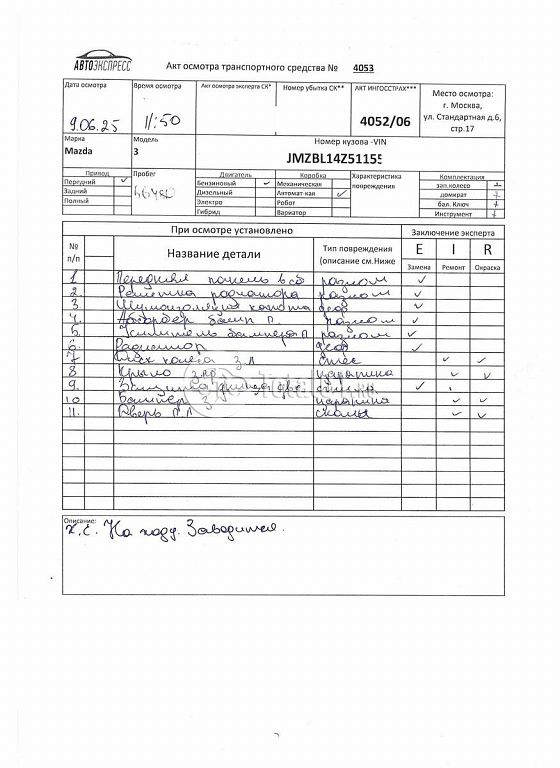 АВТОЭКСПРЕСС
Акт осмотра транспортного средства № 4053
Дата осмотра Время осмотра Акт осмотра эксперта СК* Номер убытка СК** АКТ ИНГОССТРАХ***
Место осмотра:
г. Москва,
ул. Стандартная д.6,
стр.17
9.06.25 11:50 4052/06
Марка Модель Номер кузова -VIN
Mazda 3 JMZBL14Z51155
Привод Пробег Двигатель Коробка Характеристика повреждения Комплектация
Передний ✓ Бензиновый ✓ Механическая зап.колесо +
Задний Дизельный Автомат-кая ✓ домкрат +
Полный Электро Робот бал. Ключ +
Гибрид Вариатор Инструмент +
При осмотре установлено Заключение эксперта
№ п/п Название детали Тип повреждения (описание см.Ниже E I R
Замена Ремонт Окраска
1 Передняя панель в сб разлом ✓
2. Решетка радиатора разлом ✓
3. Шумоизоляция капота деф ✓
4. Абсорбер бамп п разлом ✓
5. Усилитель бампера п разлом ✓
6. Радиатор деф ✓
7 Диск колеса з л ✓ ✓
8 Крыло з пр царапина ✓ ✓
9. ✓
10 Бампер з царапина ✓ ✓
11. Дверь п л сколы ✓ ✓
Описание:
Х.С. На ходу. Заводится.